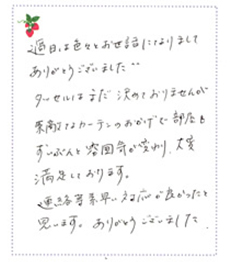 過日は色々とお世話になりまして
ありがとうございました
タッセルはまだ決めておりませんが
素敵なカーテンのおかげで部屋も
ずいぶんと雰囲気が変わり、大変
満足しております。
連絡等素早い対応が良かったと
思います。ありがとうございました